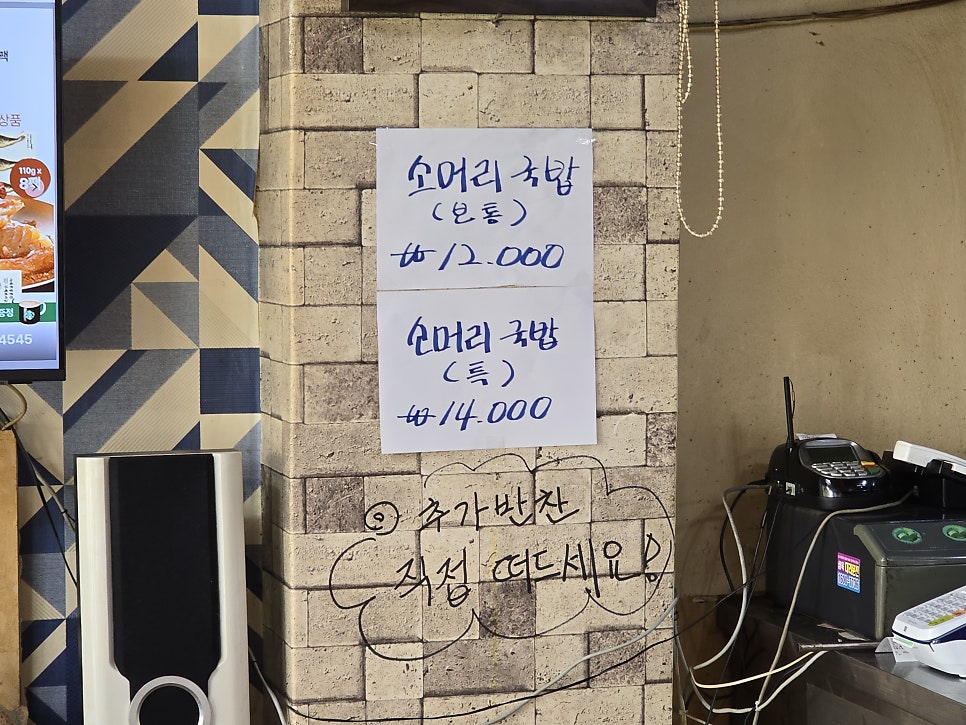 팩
상품
110g x
8팩
증정
4545
소머리 국밥
(보통)
₩12.000
소머리 국밥
(특)
₩14.000
추가반찬
직접 떠드세요!